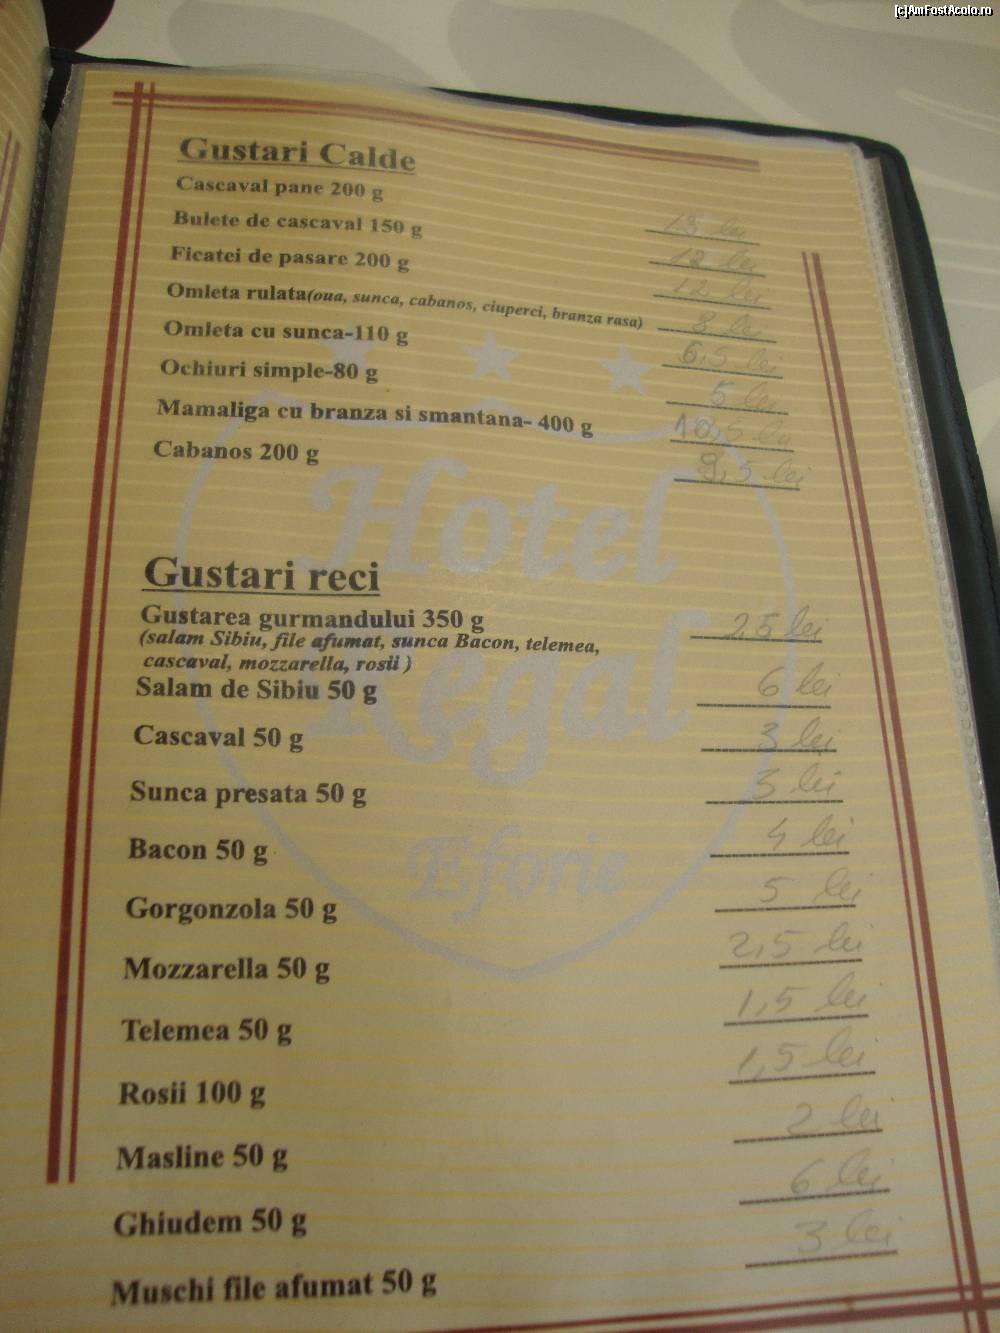 [c]AmFostAcolo.ro
Gustari Calde
Cascaval pane 200 g 13 lei
Bulete de cascaval 150 g 12 lei
Ficatei de pasare 200 g 12 lei
Omleta rulata(oua, sunca, cabanos, ciuperci, branza rasa) 8 lei
Omleta cu sunca-110 g 6,5 lei
Ochiuri simple-80 g 5 lei
Mamaliga cu branza si smantana- 400 g 10,5 lei
Cabanos 200 g 9,5 lei
Hotel
Regal
Eforie
Gustari reci
Gustarea gurmandului 350 g 25 lei
(salam Sibiu, file afumat, sunca Bacon, telemea,
cascaval, mozzarella, rosii )
Salam de Sibiu 50 g 6 lei
Cascaval 50 g 3 lei
Sunca presata 50 g 3 lei
Bacon 50 g 4 lei
Gorgonzola 50 g 5 lei
Mozzarella 50 g 2,5 lei
Telemea 50 g 1,5 lei
Rosii 100 g 1,5 lei
Masline 50 g 2 lei
Ghiudem 50 g 6 lei
Muschi file afumat 50 g 3 lei